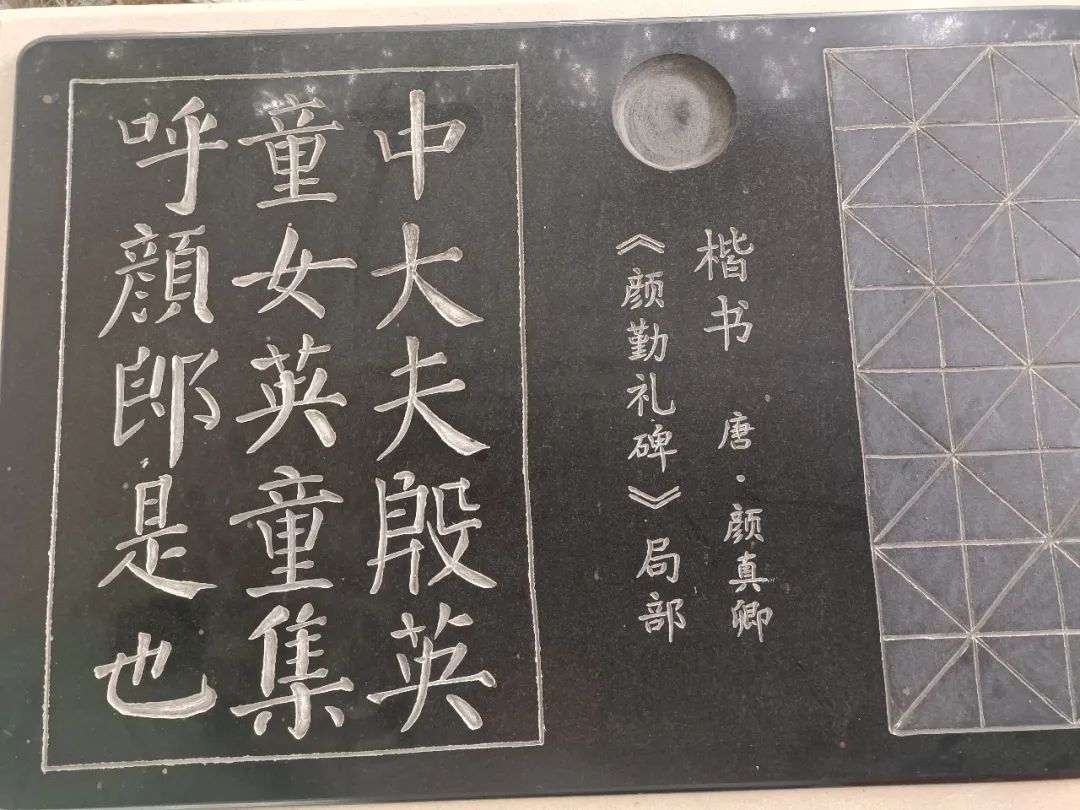 楷书 唐·颜真卿
《颜勤礼碑》局部
中大夫殷英
童女英童集
呼顔郎是也